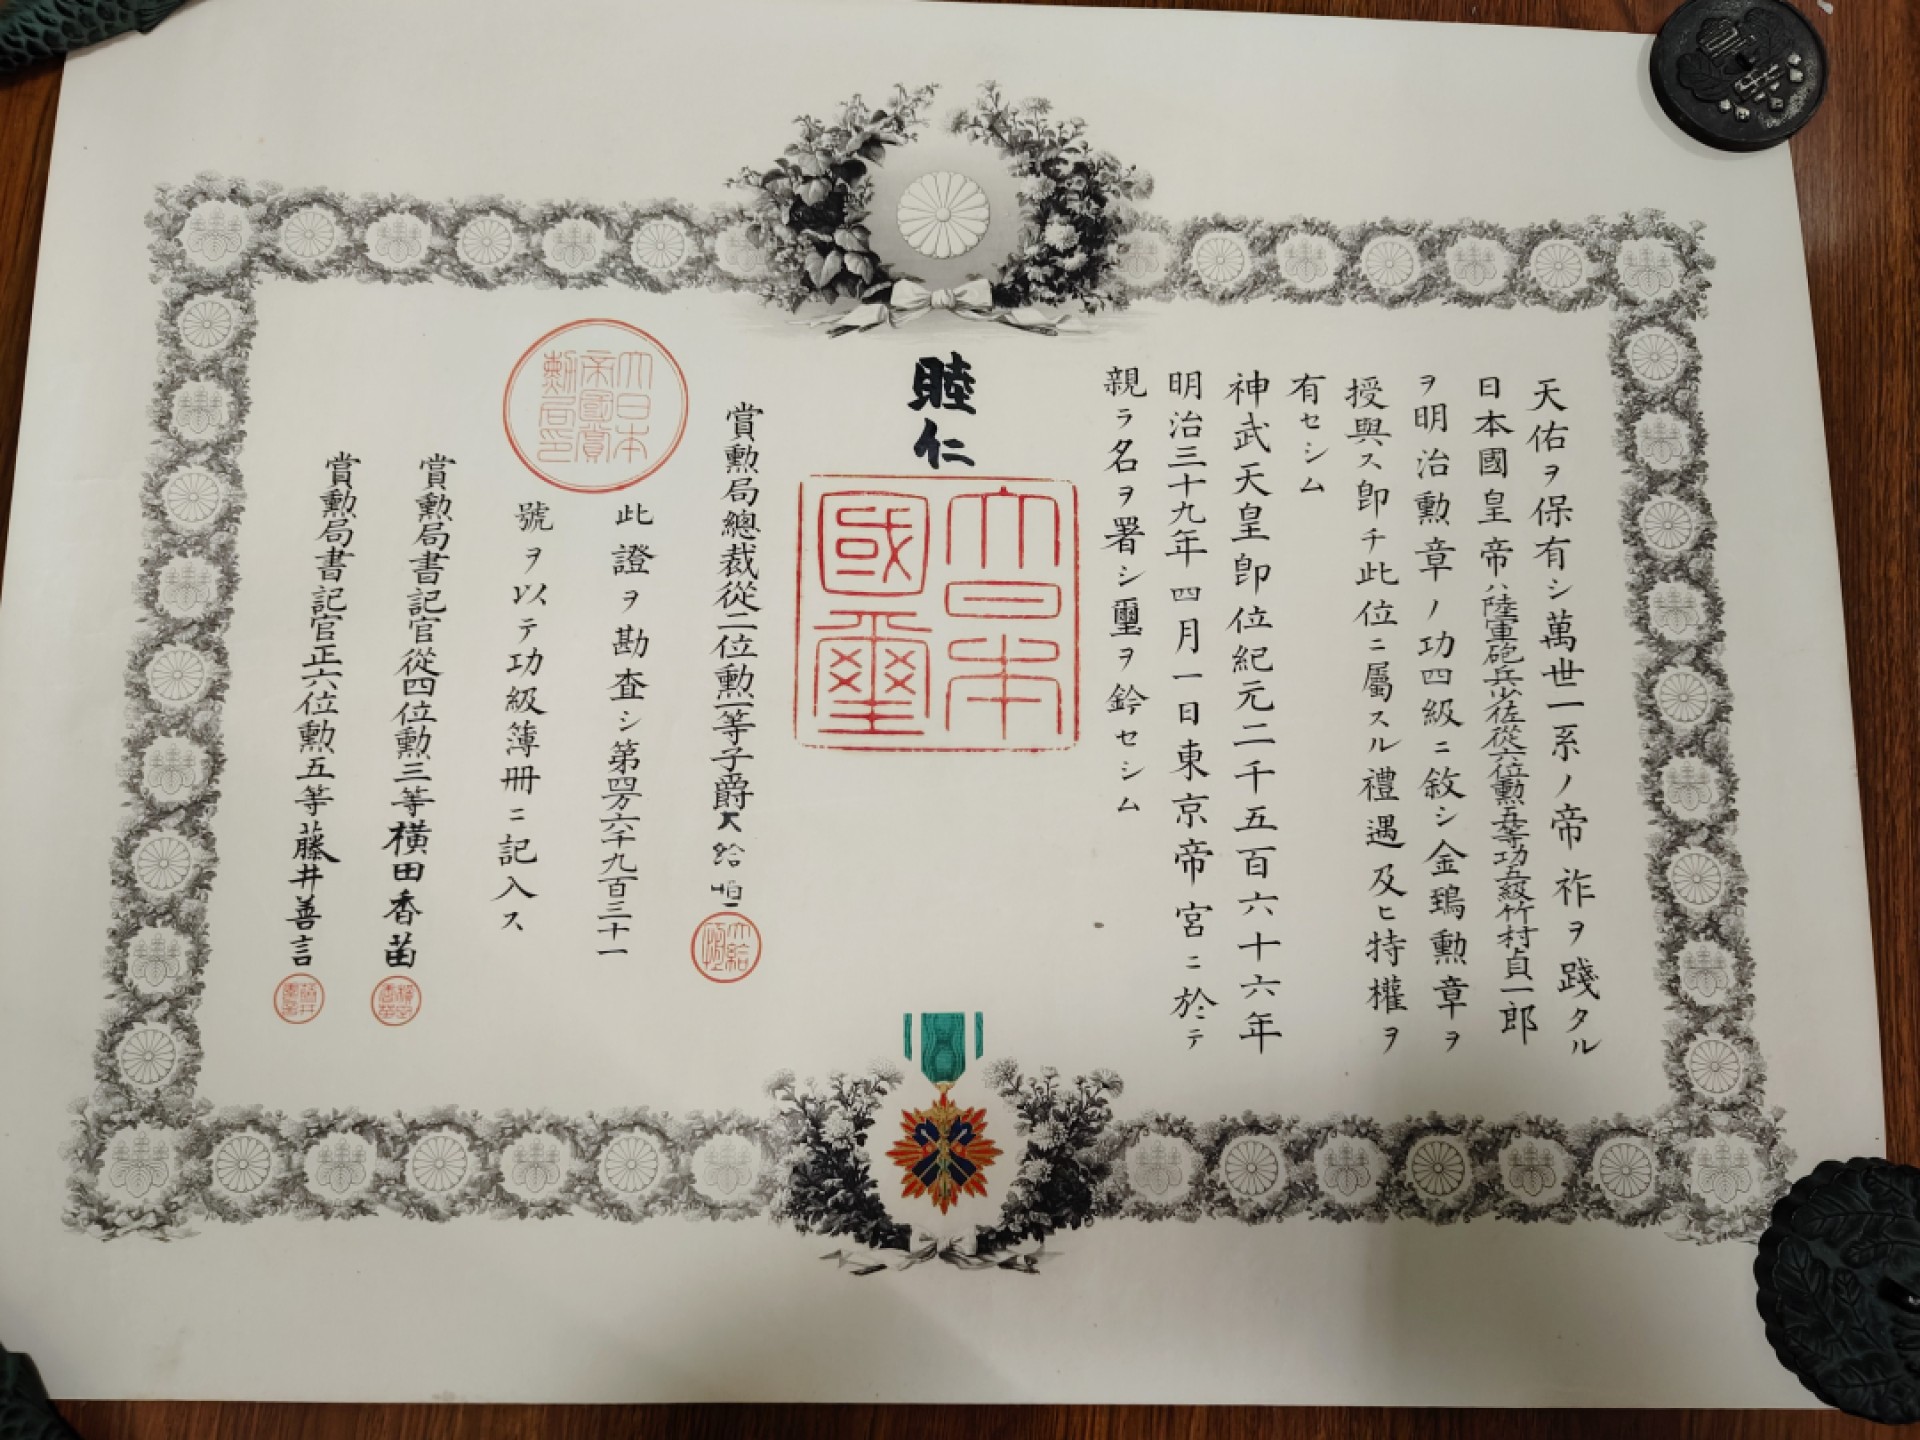 天佑ヲ保有シ萬世一系ノ帝祚ヲ踐タル
日本國皇帝ハ陸軍砲兵少佐從六位勲五等功五級竹村貞一郎
ヲ明治勲章ノ功四級ニ敘シ金鵄勲章ヲ
授與ス卽チ此位ニ屬スル禮遇及ヒ特權ヲ
有セシム
神武天皇卽位紀元二千五百六十六年
明治三十九年四月一日東京帝宮ニ於テ
親ラ名ヲ署シ璽ヲ鈐セシム
睦仁
大日本
國璽
賞勲局總裁從二位勲一等子爵大給恒
大給恒
大日本
帝國賞
勲局印
此證ヲ勘査シ第四万六千九百三十一
號ヲ以テ功級簿冊ニ記入ス
賞勲局書記官從四位勲三等横田香苗
賞勲局書記官正六位勲五等藤井善言